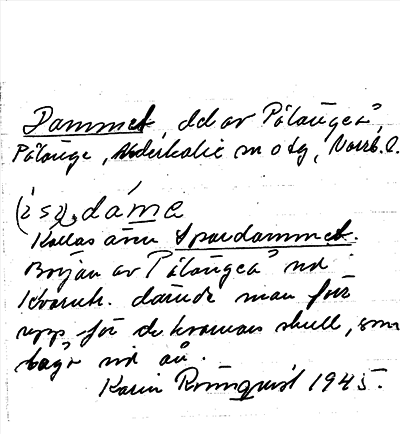 Dammet, del av Pålängeå,
Pålänge, Nederkalix sn o tg, Norrb. l.
(i sq) dáme
Kallas även Spardammet.
Början av Pålängeå vid
Kvarnk. dämde man för
upp för de kvarnars skull, som
lågo vid ån.
Karin Rönnquist 1945.